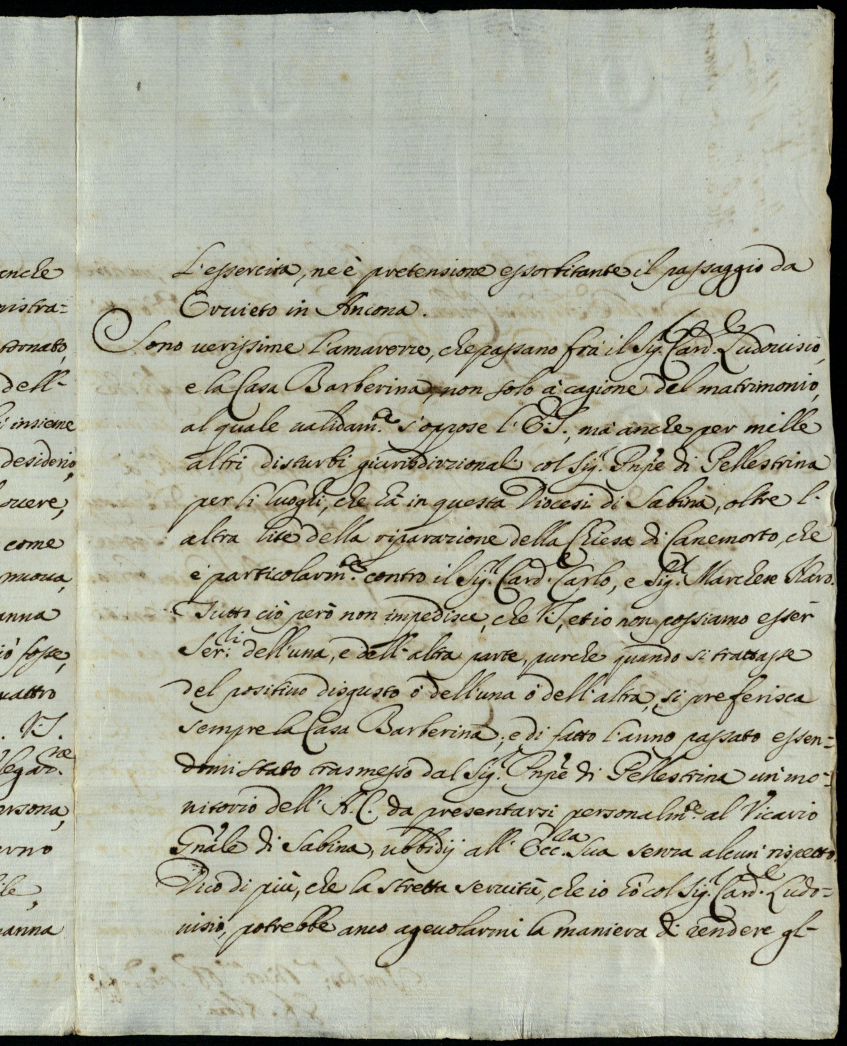 anche
nistra=
tornato,
dell'
insieme
desiderio,
come
nuova,
anna
fosse,
uattro
. VS.
legaz.ne
ersona,
rno
anna
L'essercita, ne è pretensione essorbitante il passaggio da
Orvieto in Ancona.
Sono verissime l'amarezze, che passano frà il Sig.r Card.le Ludovisio,
e la Casa Barberina, non solo à cagione del matrimonio,
al quale validam.te s'oppose l'E.S., mà anche per mille
altri disturbi giurisdizzionali col Sig.r Pnpe di Pellestrina
per li luoghi, che hà in questa Diocesi di Sabina, oltre l'
altra lite della riparazione della Chiesa di Canemorto, che
è particolarm.te contro il Sig.r Card.le Carlo, e Sig.r Marchese Naro.
Tutto ciò però non impedisce, che VS, et io non possiamo esser
Ser.li dell'una, e dell'altra parte, purche quando si trattasse
del positivo disgusto ò dell'una ò dell'altra, si preferisca
sempre la Casa Barberina; e di fatto l'anno passato essen=
domi stato trasmesso dal Sig.r Pnpe di Pellestrina un mo=
nitorio dell'A.C. da presentarsi personalm.te al Vicario
Gnale di Sabina, ubbidij all'Ecc.lla Sua senza alcun rispetto.
Dico di più, che la stretta servitù, che io hò col Sig.r Card.le Ludo=
visio, potrebbe anco agevolarmi la maniera di rendere gl'